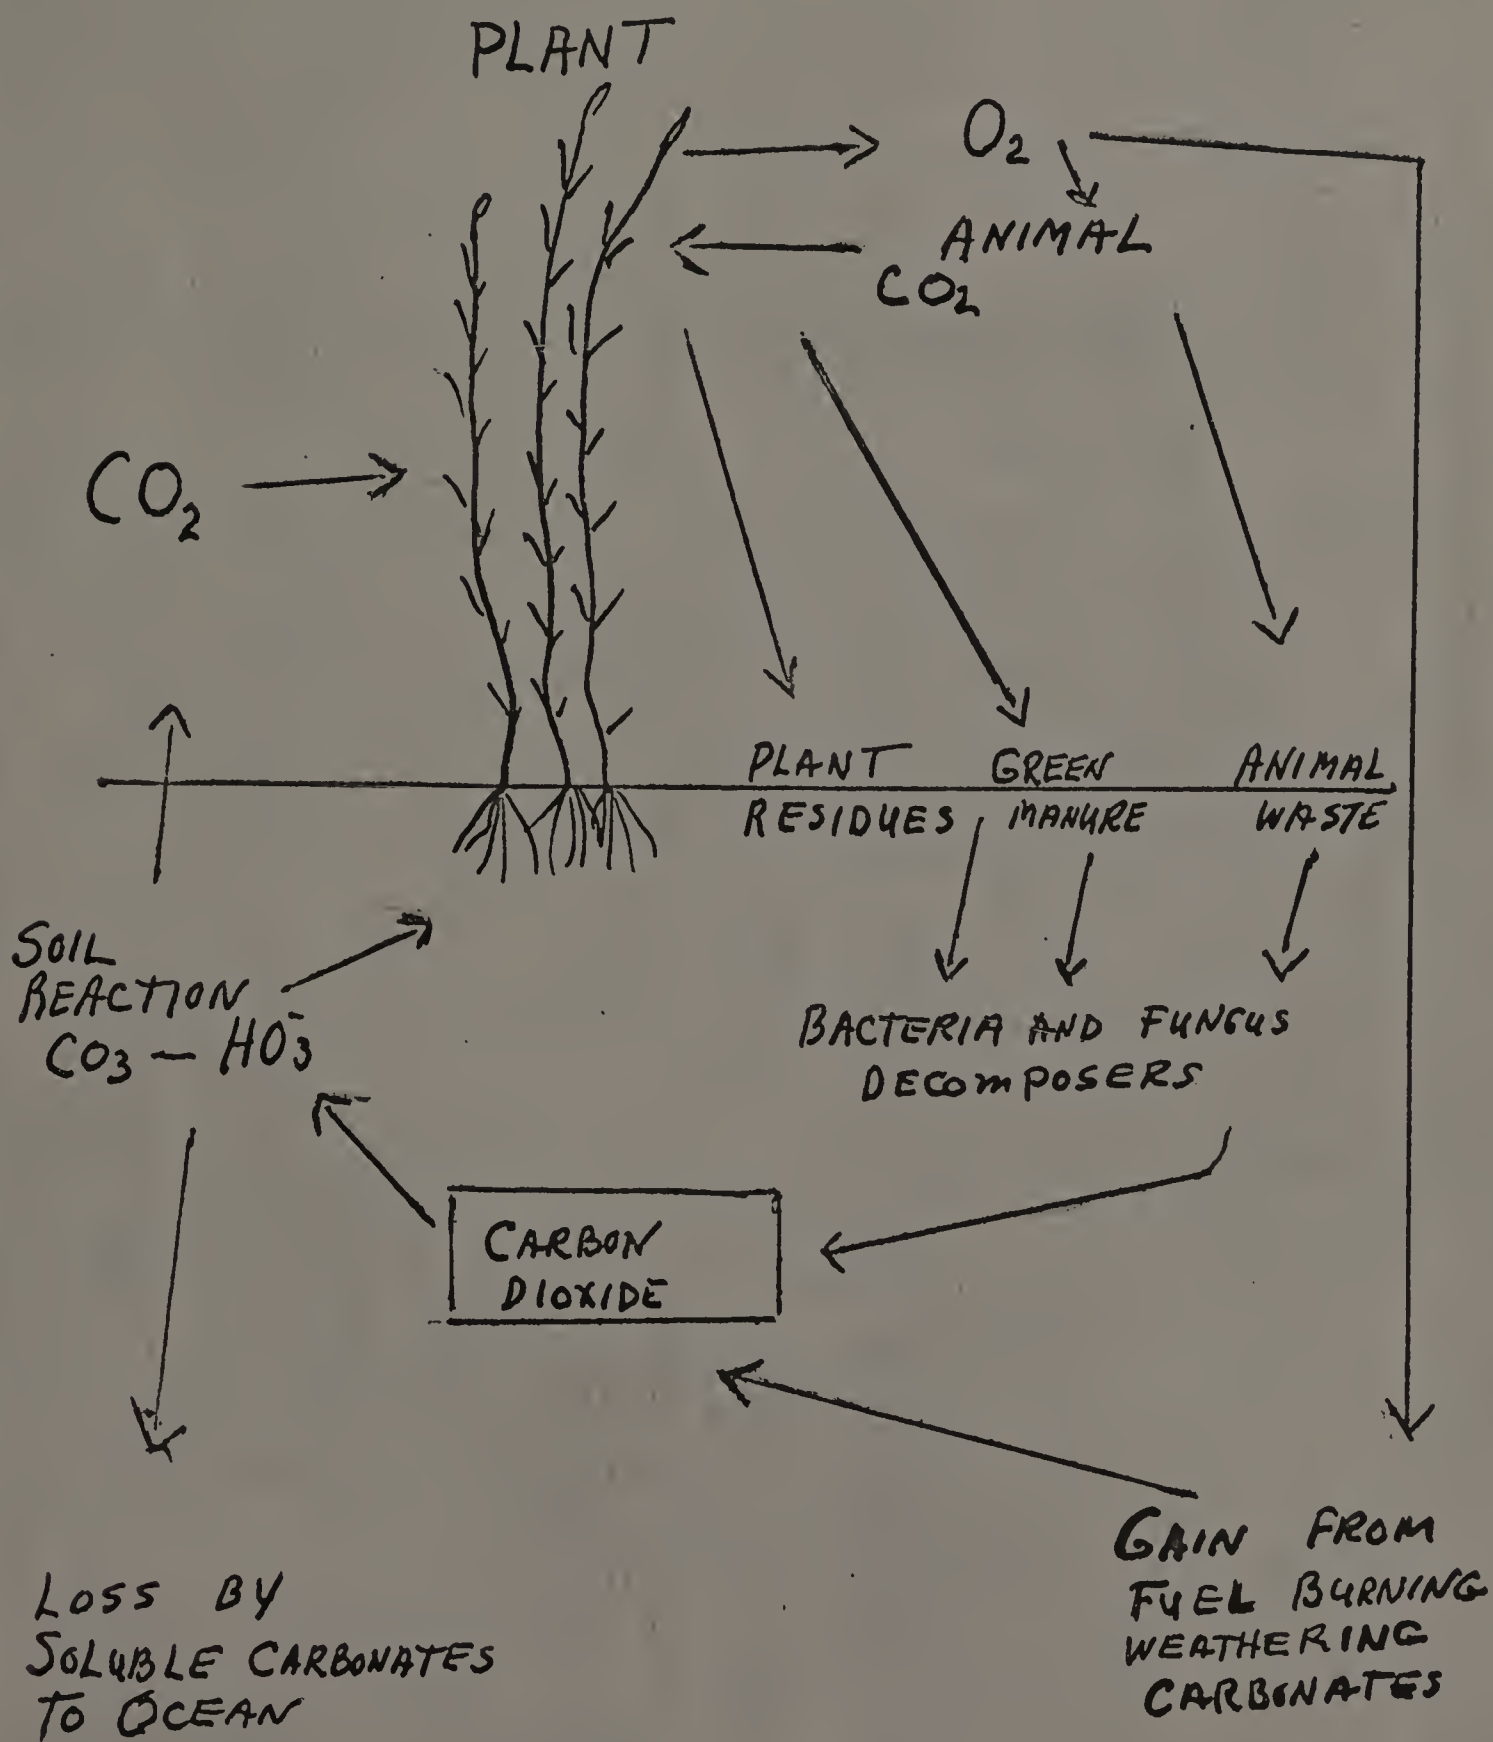 PLANT
O₂
ANIMAL
CO₂
CO₂
PLANT RESIDUES
GREEN MANURE
ANIMAL WASTE
SOIL
REACTION
CO₃ — HO₃⁻
BACTERIA AND FUNGUS
DECOMPOSERS
CARBON
DIOXIDE
LOSS BY
SOLUBLE CARBONATES
TO OCEAN
GAIN FROM
FUEL BURNING
WEATHERING
CARBONATES